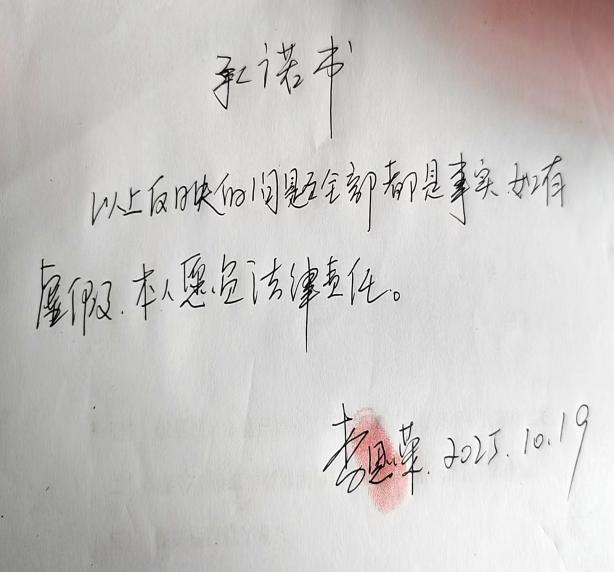 承诺书
以上反映的问题全部都是事实如有
虚假.本人愿负法律责任。
李恩荣.2025.10.19